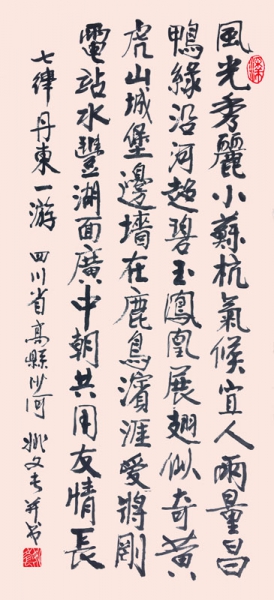 風光秀麗小蘇杭氣候宜人雨量昌
鴨緣沿河超碧玉鳳凰展翅似奇黄
虎山城堡邊墻在鹿鳥濱涯愛將剛
電站水豐湖面廣中朝共用友情長
七律丹東一游 四川省高縣沙河 姚文长并书